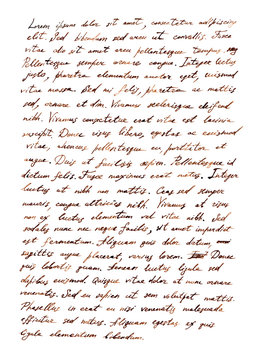 Lorem ipsum dolor sit amet, consectetur adipiscing
elit. Sed bibendum sed arcu ut convallis. Fusce
vitae dui sit amet arcu pellentesque tempus
Pellentesque semper ornare congue. Integer lectus
justo, pharetra elementum auctor eget, euismod
vitae massa. Sed mi felis, pharetra ac mattis
sed, ornare et dui. Vivamus scelerisque eleifend
nibh. Vivamus consectetur erat vitae est lacinia
suscipit. Donec risus libero, egestas ac euismod
vitae, rhoncus pellentesque ex, porttitor at
augue. Duis ut facilisis sapien. Pellentesque id
dictum felis. Fusce maximus erat metus. Integer
luctus at nibh non mattis. Cras sed semper
mauris, congue ultricies nibh. Vivamus at risus
non ex luctus elementum vel vitae nibh. Sed
sodales nunc nec neque facilis, sit amet imperdiet
est fermentum. Aliquam quis dolor dictum,
sagittis augue placerat, varius lorem. Donec
quis lobortis quam. Aenean luctus ligula sed
dapibus euismod. Quisque vitae dolor at nunc ornare
venenatis. Sed eu sapien sit sem volutpat mattis.
Phasellus in erat eu nisi venenatis malesuada
efficitur sed metus. Aliquam egestas ex quis
ligula elementum bibendum.